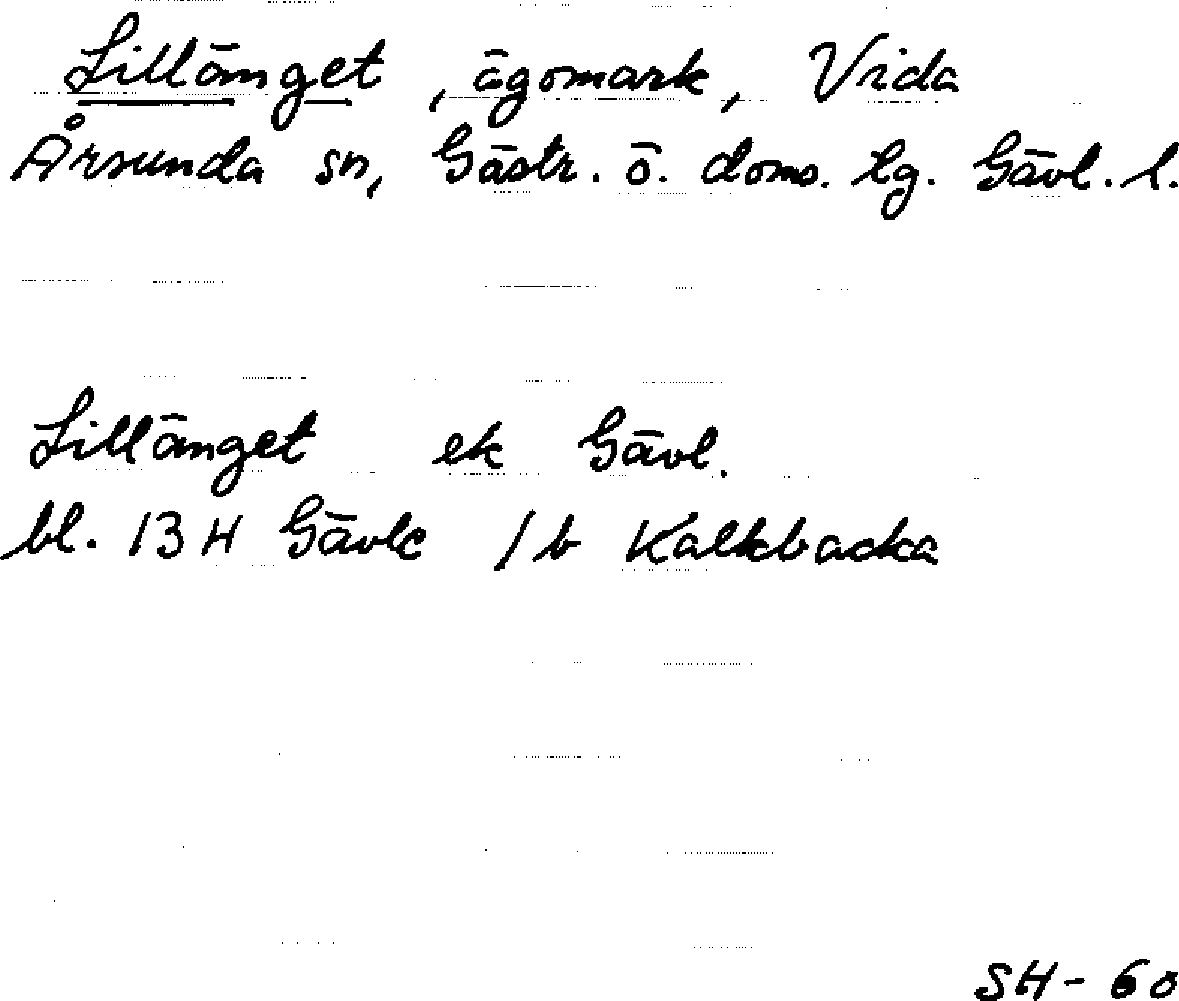 Lillänget, ägomark, Vida
Årsunda sn, Gästr. ö. doms. lg. Gävl. l.
Lillänget ek Gävl.
bl. 13 H Gävle / b Kalkbacka
SH - 60